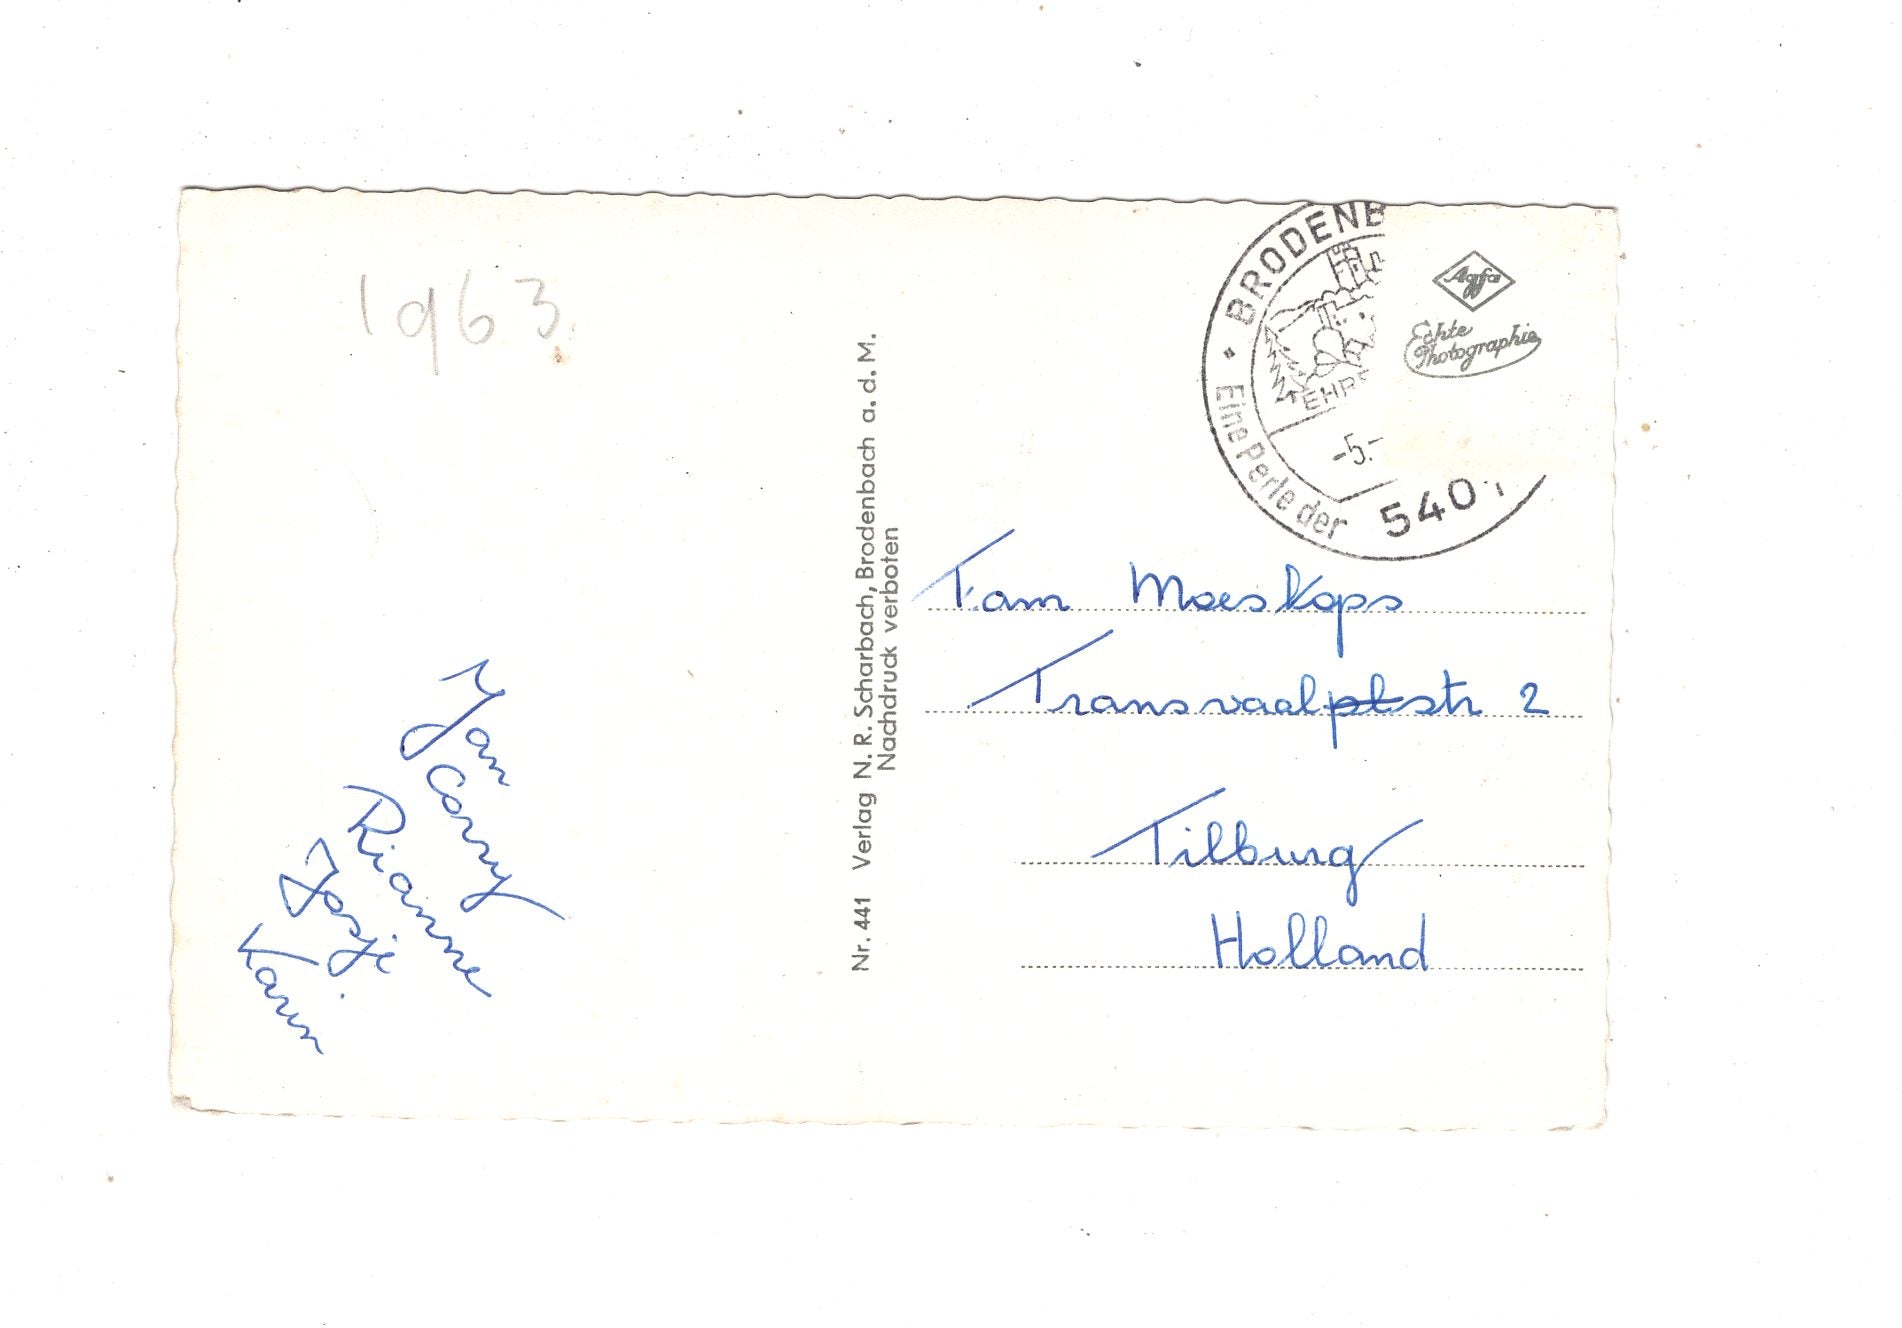 1963
Jan
Corry
Rianne
Josje
Karin
Nr. 441 Verlag N. R. Scharbach, Brodenbach a. d. M.
Nachdruck verboten
BRODENB
EHR
Eine Perle der
-5.-
540
Agfa
Echte
Photographie
Fam Moeskops
Transvaalplstr 2
Tilburg
Holland